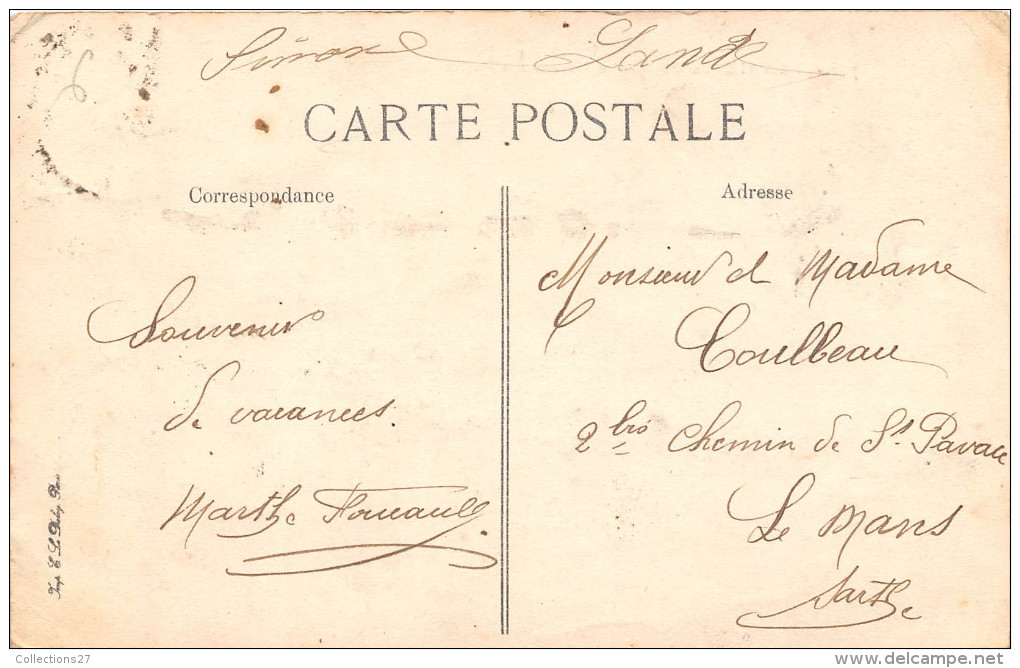 Simone Lande
CARTE POSTALE
Correspondance
Adresse
Souvenir
de vacances
Marthe Foucault
Monsieur et Madame
Coulbeau
2 bis chemin de St Pavace
Le Mans
Sarthe
Collections27
www.delcampe.net